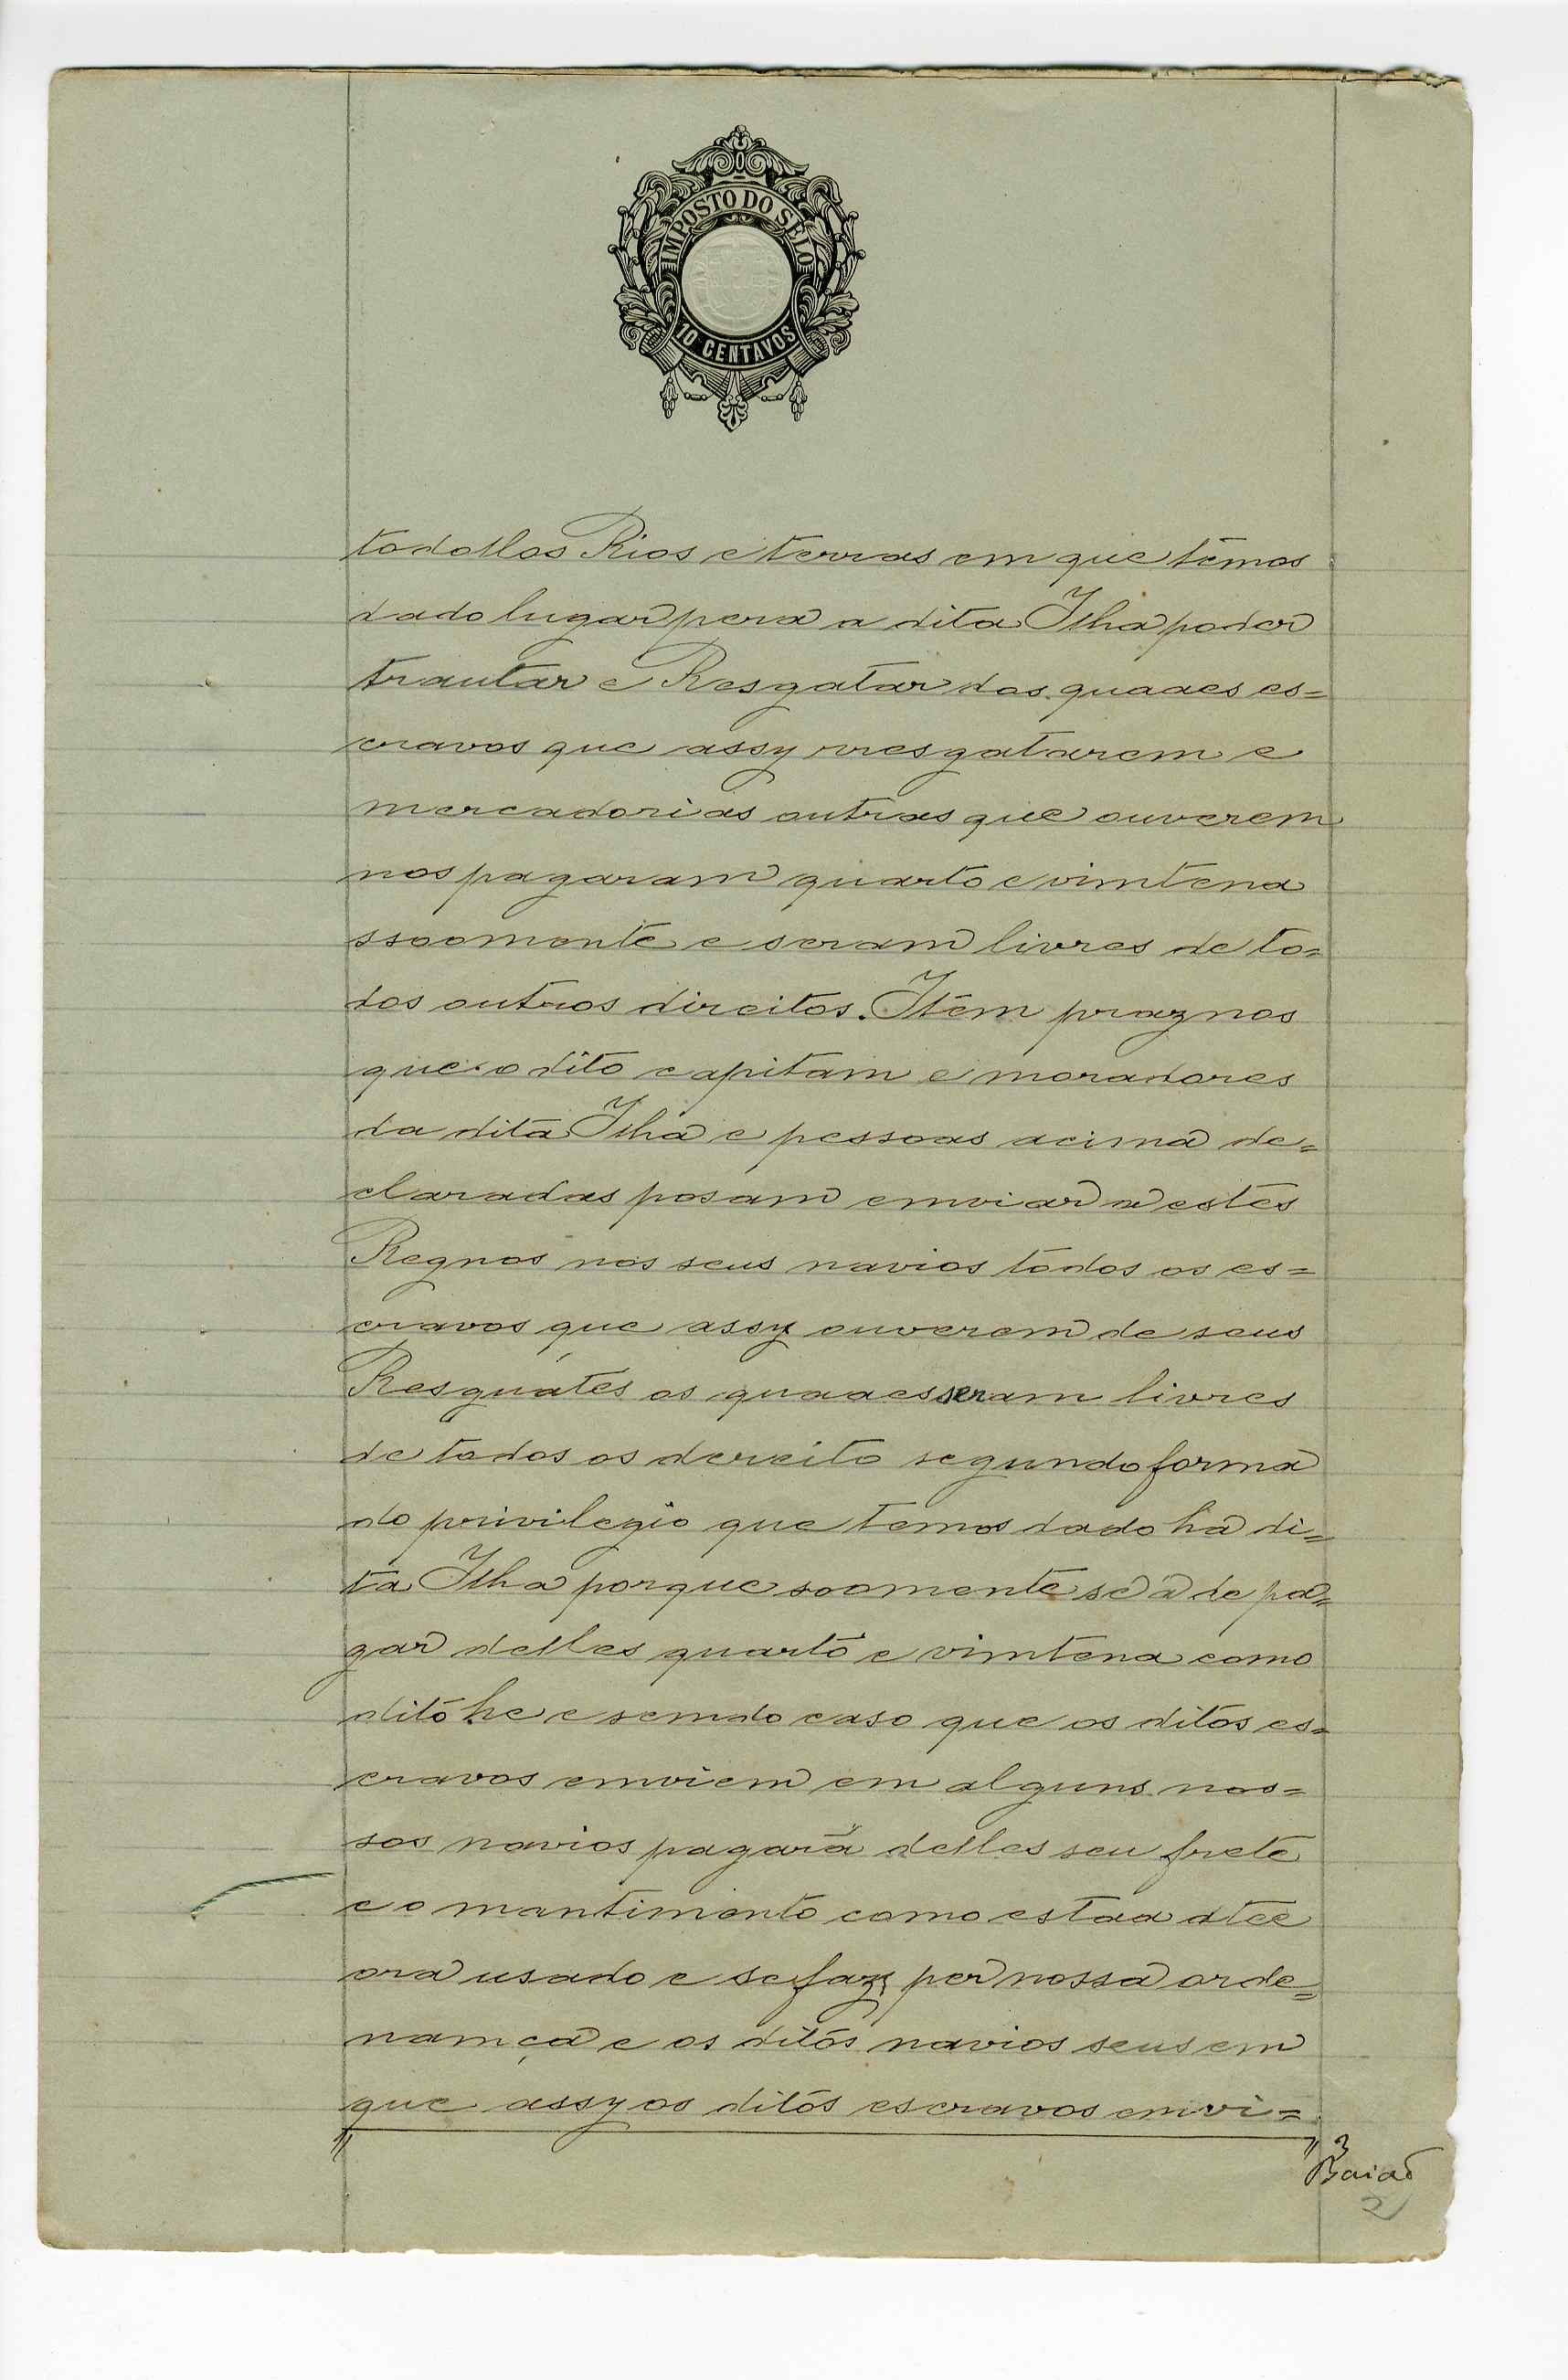 IMPOSTO DO SELO
10 CENTAVOS
todollos Rios e terras em que temos
dado lugar pera a dita Ilha poder
trautar e Resgatar dos quaaes es=
cravos que assy rresgatarem e
mercadorias outras que ouverem
nos pagaram quarto e vimtena
ssoomente e seram livres de to=
dos outros direitos. Item praz nos
que o dito capitam e moradores
da dita Ilha e pessoas acima de=
claradas posam emviar a estes
Regnos nos seus navios todos os es=
cravos que assy ouverem de seus
Resguates os quaaes seram livres
de todos os derreito segundo forma
do privilegio que temos dado ha di=
ta Ilha porque soomente se á de pa=
gar delles quarto e vimtena como
dito he e semdo caso que os ditos es=
cravos emviem em alguns nos=
sos navios pagarã delles seu frete
e o mantimento como estaa atee
ora usado e se faz per nossa orde=
namça e os ditos navios seus em
que assy os ditos escravos emvi=
3
Baião
2